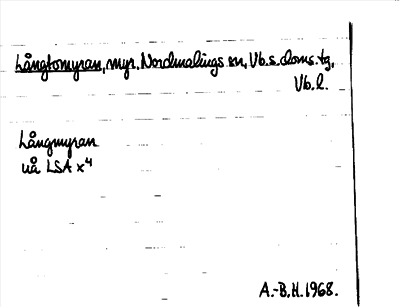 Långtomyran, myr. Nordmalings sn, Vb.s.doms.tg,
Vb.l.
Långmyran
uå LSA x4
A.-B.H. 1968.